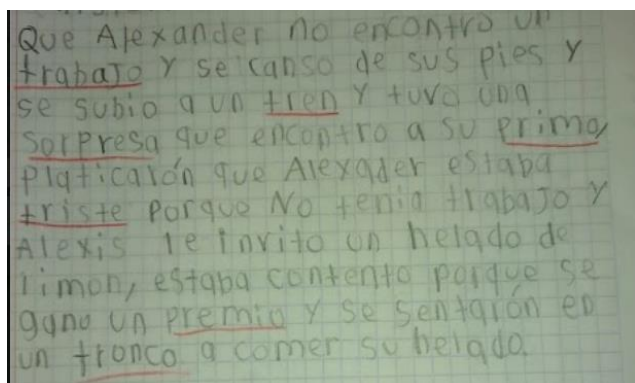 Que Alexander no encontro un
trabajo Y se canso de sus pies Y
se subio a un tren Y tuvo una
sorpresa que encontro a su primo,
Platicarón que Alexader estaba
triste Porque No tenia trabajo Y
Alexis le invito un helado de
limon, estaba contento porque se
gano un premio Y se sentarón en
un tronco a comer su helado.